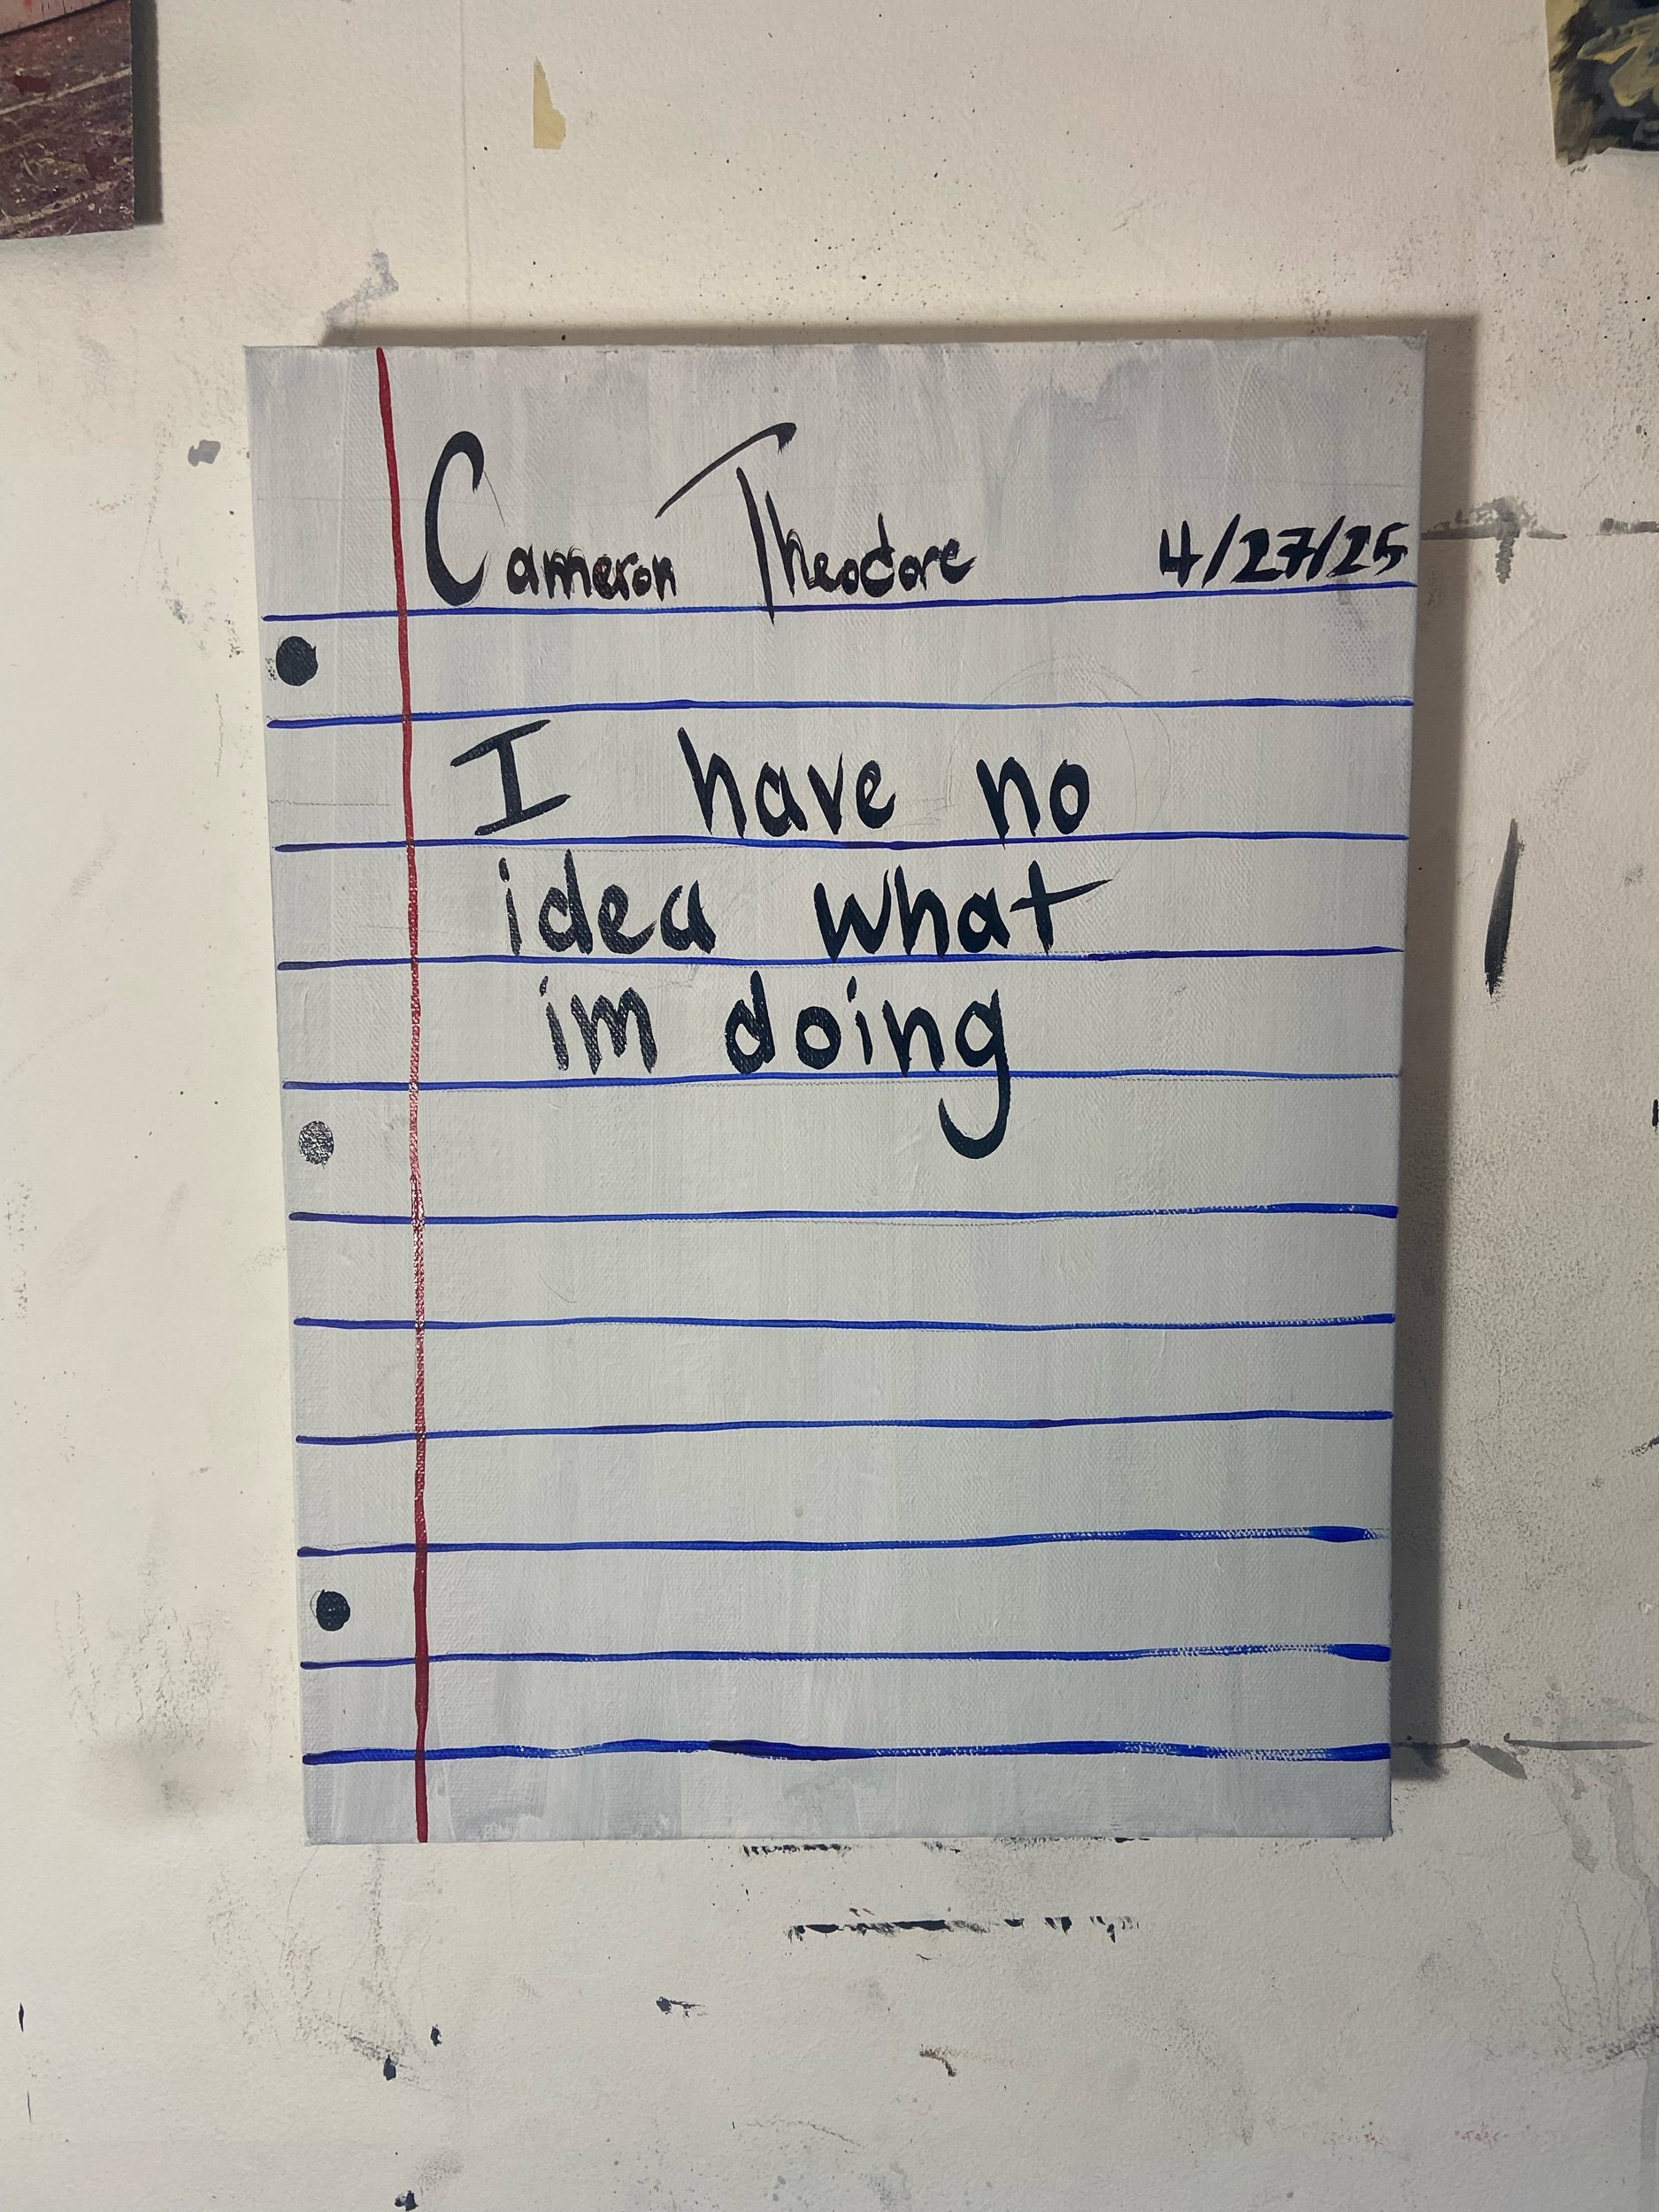 Cameron Theodore 4/27/25
I have no
idea what
im doing